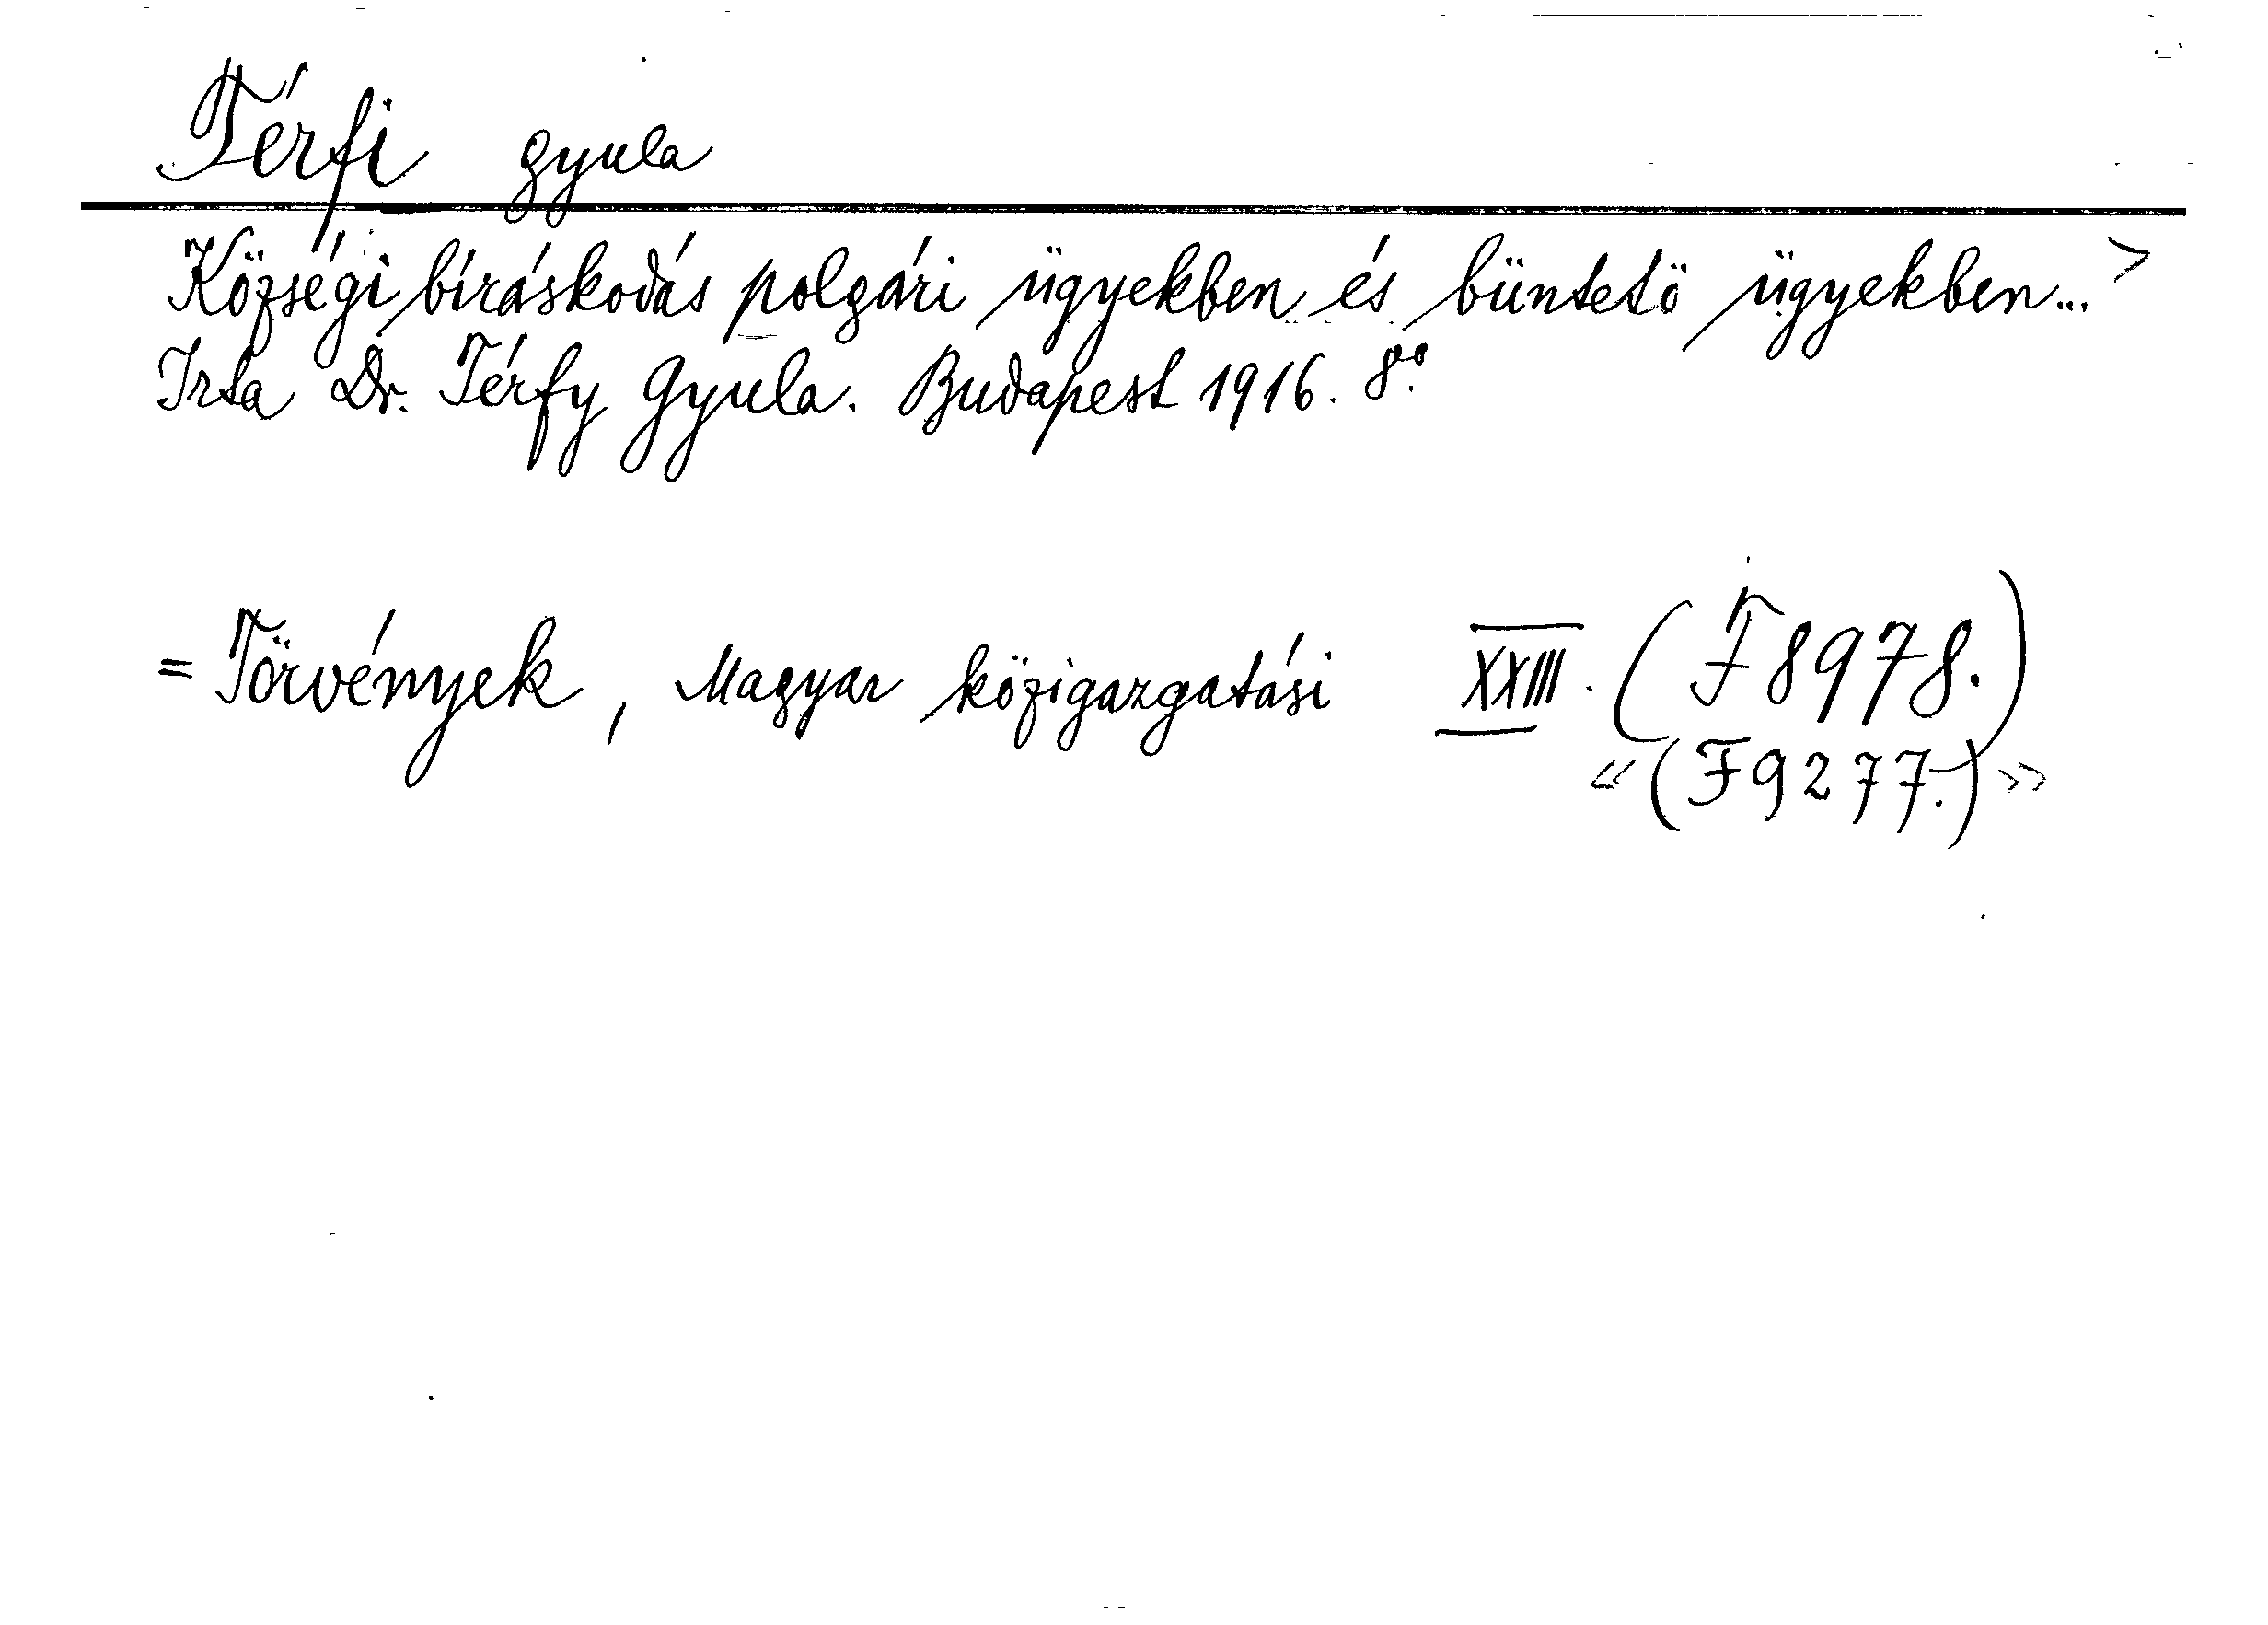 Térfi Gyula
Községi bíráskodás polgári ügyekben és büntetö ügyekben... >
Irta Dr. Térfy Gyula. Budapest 1916. 8°.
= Törvények, Magyar közigazgatási XXIII. (F 8978.)
«(F 9277.)»